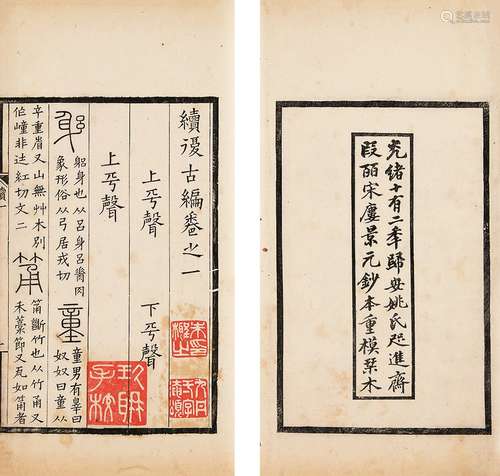 光緒十有二季歸安姚氏咫進齋
叚皕宋廔景元鈔本重模栞木
續復古編卷之一
上平聲 下平聲
上平聲
躳
躳身也从呂身呂膂肉
象形俗从弓居戎切
童
童男有辠曰
奴奴曰童从
辛重省又山無艸木別
作㠉非徒紅切文二
筩
筩斷竹也从竹甬又
禾藁節又瓦如筩者
續一
玖聃
手校